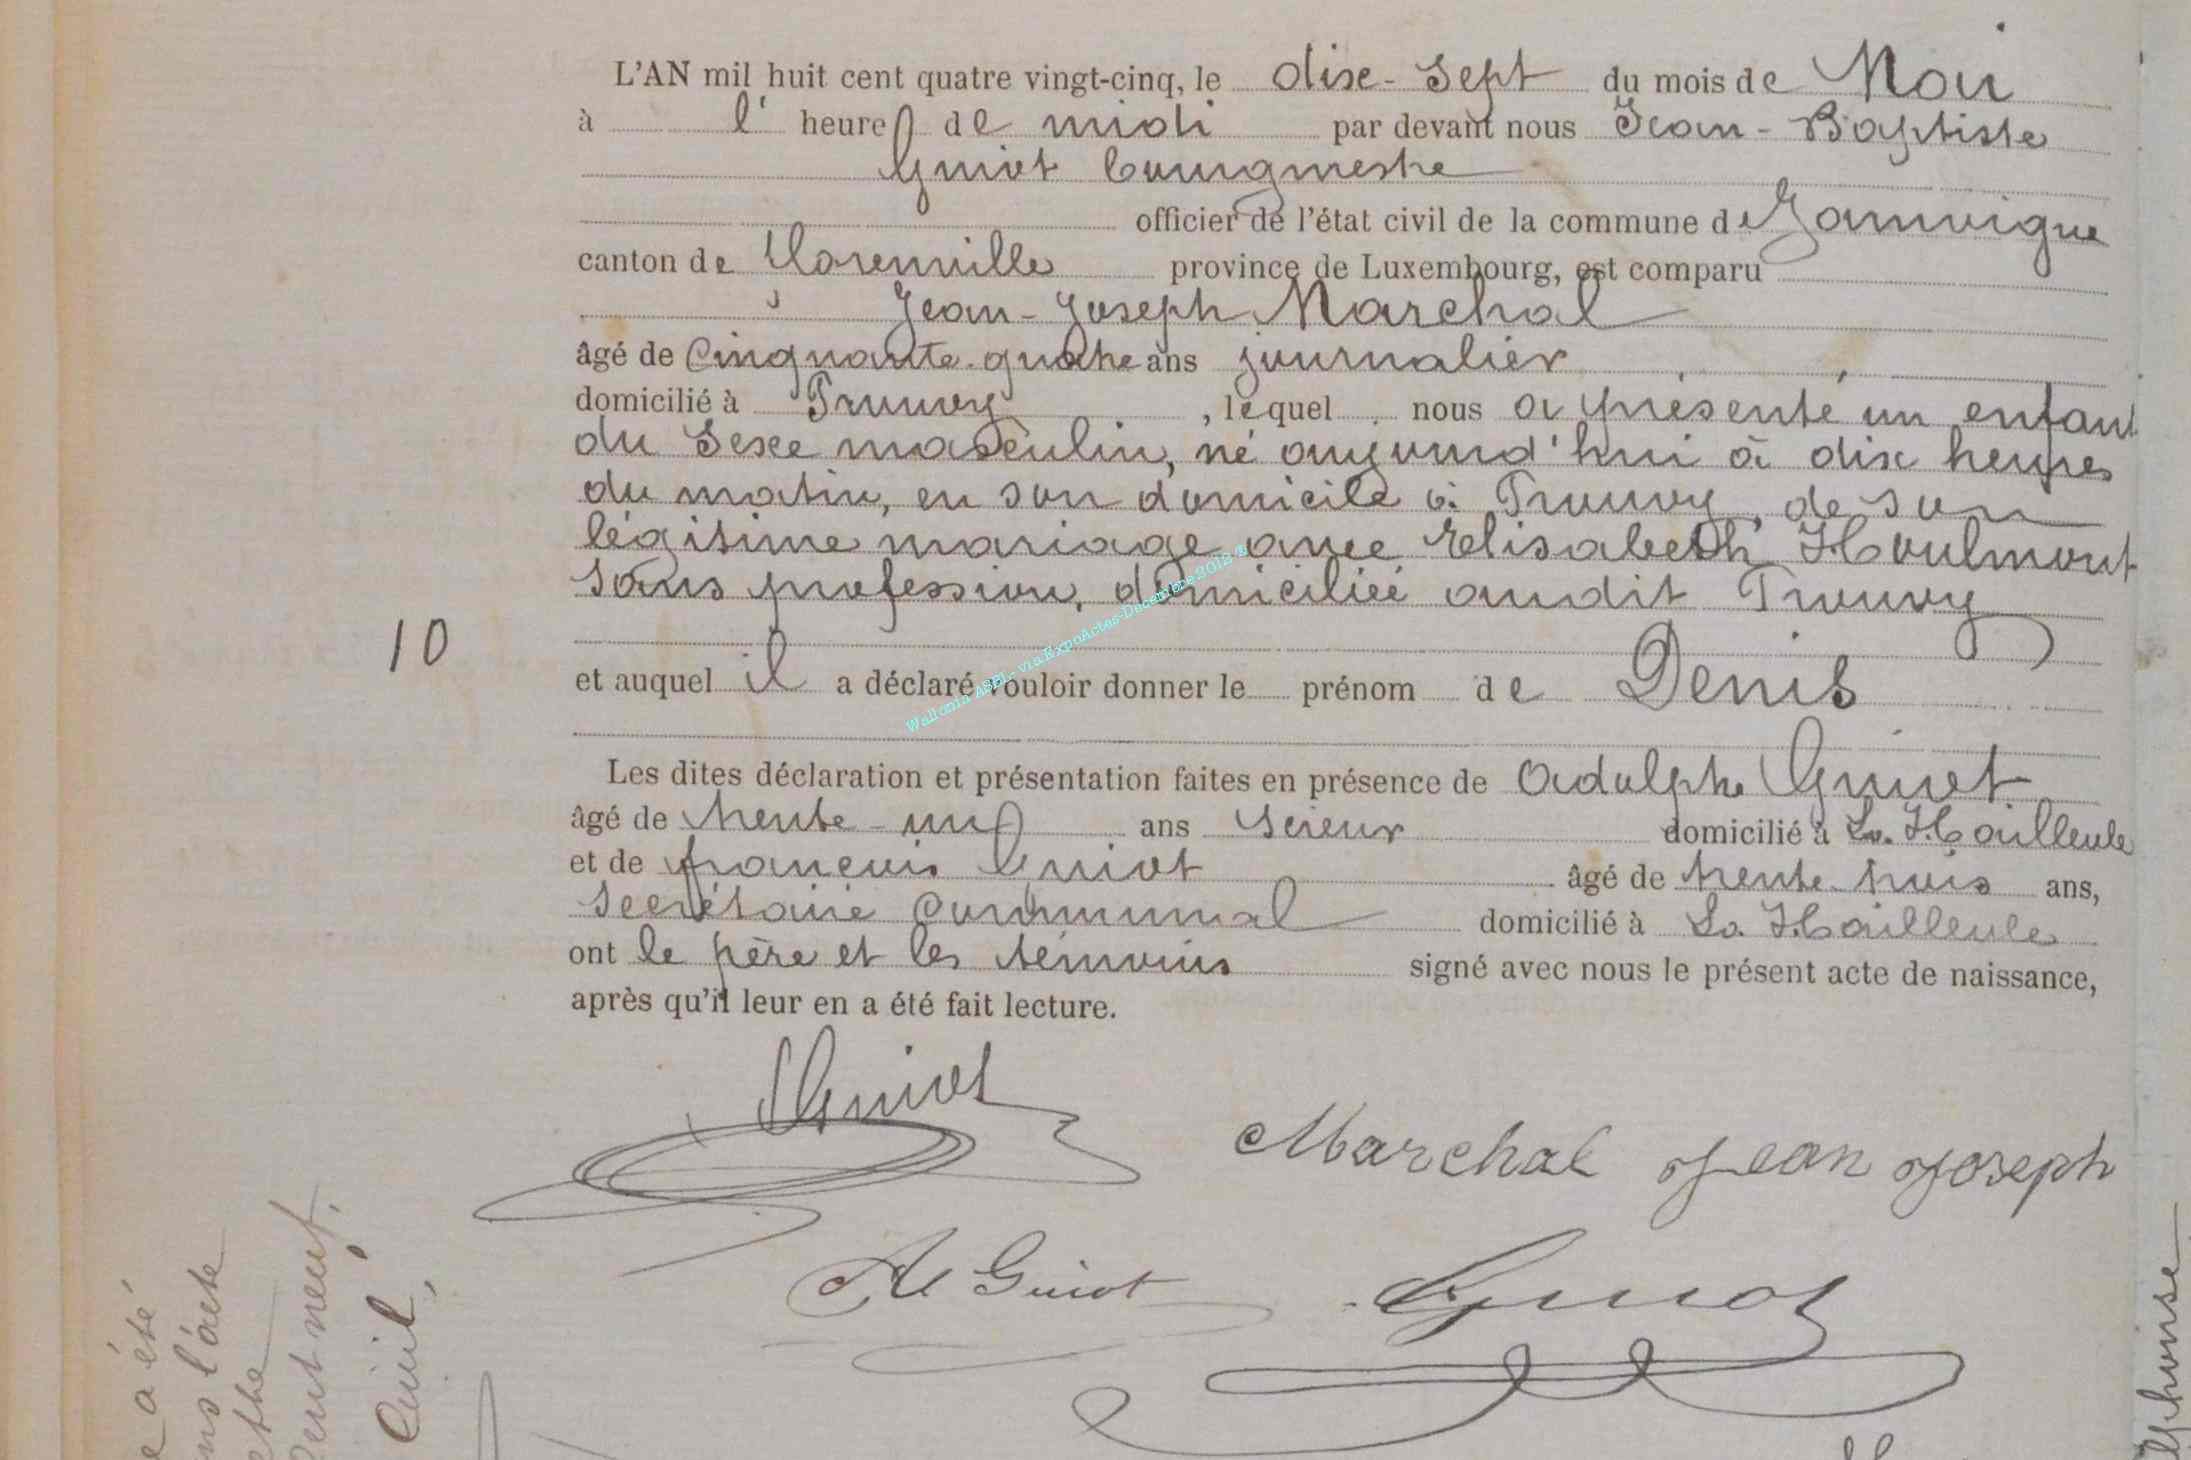 L'AN mil huit cent quatre vingt-cinq, le dix-sept du mois de Mai
à l' heure de midi par devant nous Jean-Baptiste
Guiot bourgmestre
officier de l'état civil de la commune de
canton de province de Luxembourg, est comparu
Jean-Joseph Marchal
âgé de Cinquante-quatre ans journalier
domicilié à , lequel nous a présenté un enfant
du sexe masculin, né aujourd'hui à dix heures
du matin, en son domicile à de son
légitime mariage avec Elisabeth Houlmont
sans profession, domiciliée audit
10
et auquel il a déclaré vouloir donner le prénom de Denis
Wallonia ASBL - via ExpoActes-Decembre 2012 ®
Les dites déclaration et présentation faites en présence de Adolphe Guiot
âgé de trente-un ans scieur domicilié à La Hailleule
et de françois Guiot âgé de trente-trois ans,
secrétaire communal domicilié à La Hailleule
ont le père et les témoins signé avec nous le présent acte de naissance,
après qu'il leur en a été fait lecture.
Guiot
Marchal Jean Joseph
Ad Guiot
Guiot
a été
l'acte
cent neuf.
Civil,
Alphonse